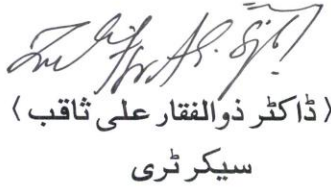 ﴿ڈاکٹر ذوالفقار علی ثاقب﴾
سیکرٹری